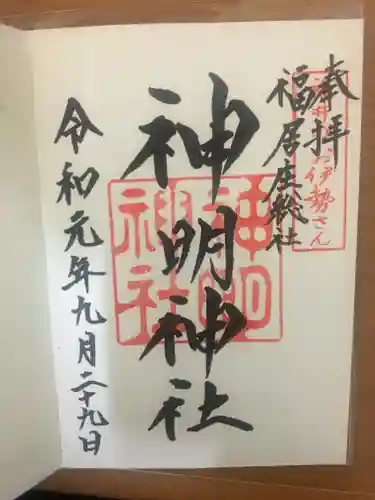 奉拝
福居庄総社
神明神社
令和元年九月二十九日
神明
神社
お伊勢さん